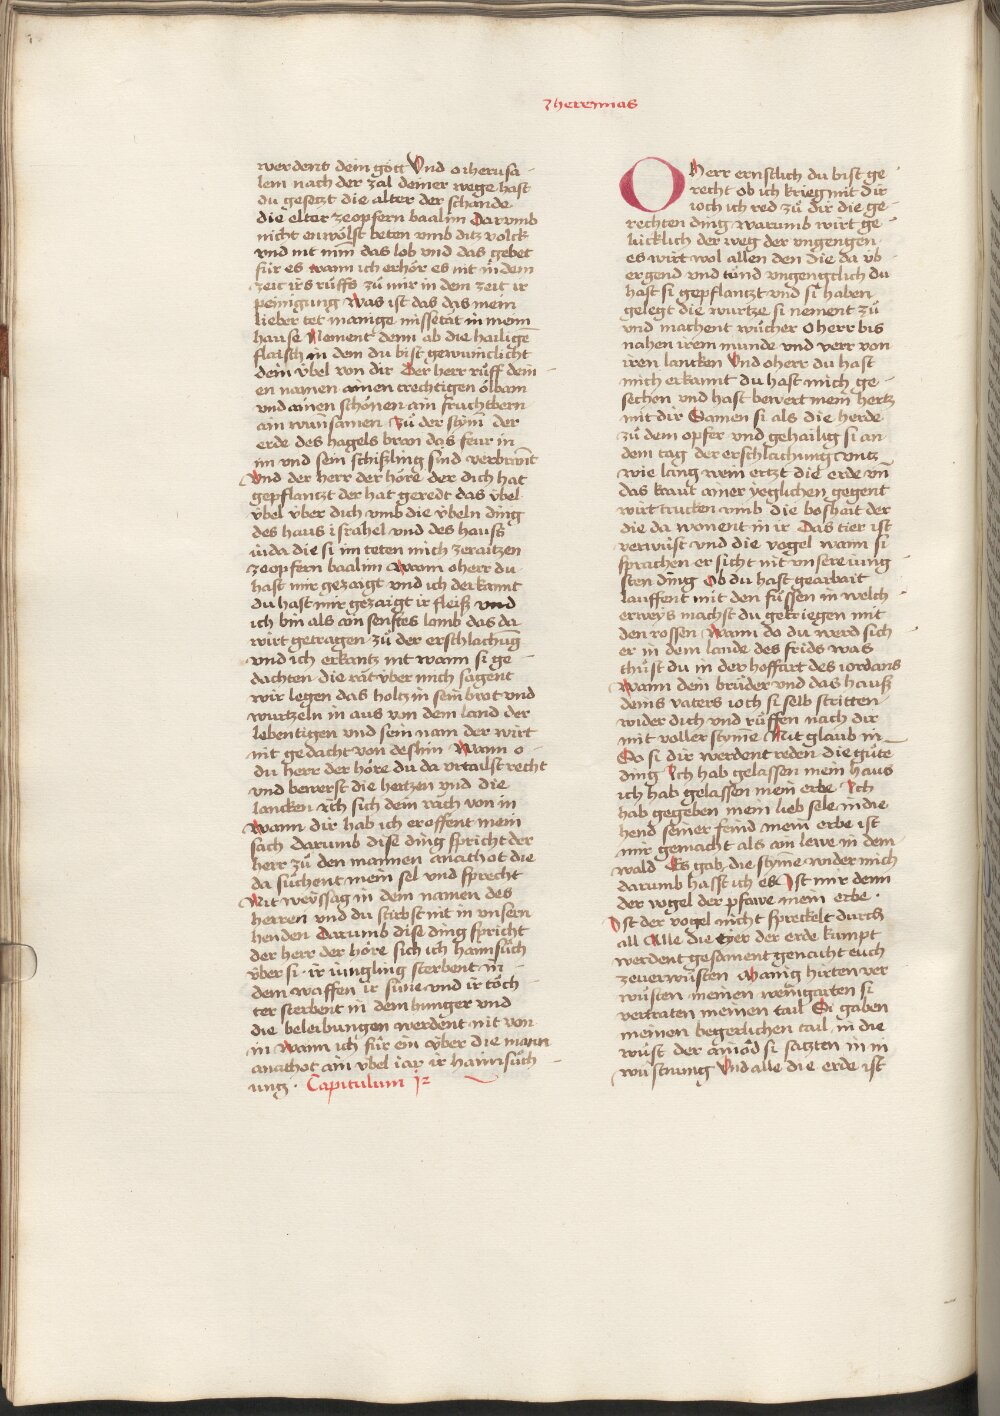 Jheremias
werdent dein gött Vnd o iherusa-
lem nach der zal deiner wege hast
du gesetzt die alter der schande
die elter ze opfern baalim Darumb
nicht enwölst beten vmb ditz volck
vnd nit nim̄ das lob vnd das gebet
für es wann ich erhör es nit in dem
zeit irs rüffs zů mir in dem zeit ir
peinigung Was ist das das mein
lieber tet manige missetat in meim
hause Nement denn ab die hailigē
flaisch in dem du bist gewunlicht
dein vbel von dir Der herr rüff dein-
en namen ainen trechtigen ölbam
vnd ainen schönen ain fruchtbern-
ain wunsamen Zů der stym̄ der
erde des hagels bran das feur in
im vnd sein schißling sind verbrant
Vnd der herr der höre der dich hat
gepflantzt der hat geredt das vbel
vbel vber dich vmb die vbeln ding
des haus israhel vnd des hauß
iuda die si im teten mich ze raitzen
ze opfern baalim Wann o herr du
hast mir gezaigt vnd ich derkannt
du hast mir gezaigt ir fleiß vnd
ich bin als ain senftes lamb das da
wirt getragen zů der erschlachūg
vnd ich erkantz nit wann si ge-
dachten die rät vber mich sagent
wir legen das holtz in sein brot vnd
wurtzeln in aus von dem land der
lebentigen vnd sein nam der wirt
nit gedacht von deshin Wann o-
du herr der höre du da vrtailst recht
vnd bewerst die hertzen vnd die
lancken ich sich dein rach von in
Wann dir hab ich eroffent mein
sach darumb dise ding spricht der
herr zů den mannen anathot die
da sůchent mein sel vnd sprecht
Nit weyssag in dem namen des
herren vnd du stirbst nit in vnsern
henden Darumb dise ding spricht
der herr der höre sich ich haimsůch
vber si · ir iungling sterbent in-
dem waffen ir süne vnd ir töch-
ter sterbent in dem hunger vnd
die beleibungen werdent nit von
in Wann ich für ein vber die mann
anathot ain vbel iar ir haimsůch-
ung · Capitulum 12
O Herr ernstlich du bist ge-
recht ob ich krieg mit dir
ioch ich red zů dir die ge-
rechten ding warumb wirt ge-
lücklich der weg der vngengen
es wirt wol allen den die da vb-
ergend vnd tünd vngengclich du
hast si gepflantzt vnd si haben
gelegt die wurtze si nement zů
vnd machent wůcher O herr bis
nahen irem munde vnd verr von
iren lancken Vnd o herr du hast
mich erkannt du hast mich ge-
sechen vnd hast bewert mein hertz
mit dir Samen si als die herde
zů dem opfer vnd gehailig si an
dem tag der erschlachung vntz
wie lang wein ertzt die erde vn̄
das kraut ainer yeglichen gegent
wirt trucken vmb die boshait der
die da wonent in ir Das tier ist
verwüst vnd die vogel wann si
sprachen er sicht nit vnsere iung-
sten ding Ob du hast gearbait
lauffent mit den füssen in welch-
erweys machst du gekriegen mit
den rossen Wann do du werd sich-
er in dem lande des frids was
thüst du in der hoffart des iordans
Wann dein brüder vnd das hauß
deins vaters ioch si selb stritten
wider dich vnd rüffen nach dir
mit voller styme Nit glaub in
So si dir werdent reden die güte
ding Ich hab gelassen mein haus
ich hab gelassen mein erbe Ich
hab gegeben mein lieb sele in die
hend seiner feind mein erbe ist
mir gemacht als ain lewe in dem
wald Es gab die styme wider mich
darumb hasst ich es Ist mir denn
der vogel der pfawe mein erbe ·
Ist der vogel nicht spreckelt durch
all Alle die tyer der erde kumpt
werdent gesament gemacht euch
ze verwüsten Manig hirten ver-
wüsten meinen weingarten si
vertraten meinen tail Si gaben
meinen begerlichen tail in die
wüst der ainöd si satzten in in
wüstnung Vnd alle die erde ist